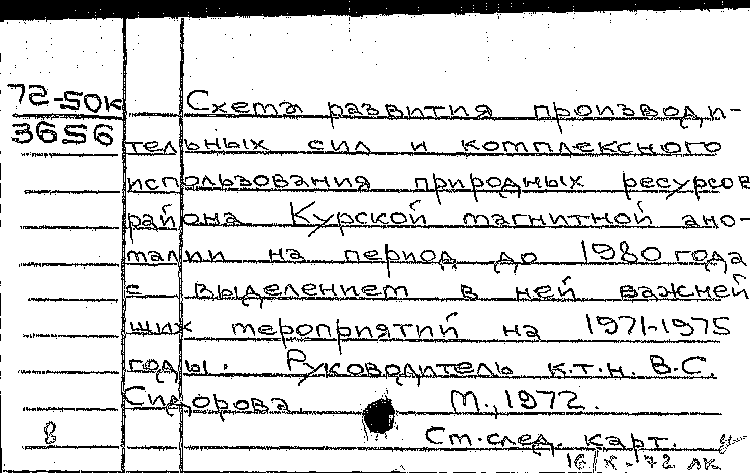 72-50к
3656
Схема развития производи-
тельных сил и комплексного
использования природных ресурсов
района Курской магнитной ано-
малии на период до 1980 года
с выделением в ней важней
ших мероприятий на 1971-1975
годы. Руководитель к.т.н. В.С.
Сидорова. М., 1972.
8 См. след. карт.
16/X-72 лк